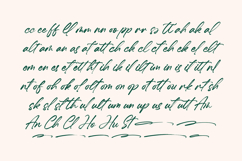 cc ee ff ll mm nn oo pp rr ss tt ah ak al
alt am an as at att ch ck cl et ch ek el elt
em en es et ell ht ih ik il ilt im in is it itt nl
nt of oh ok ol olt om on op ot ott ou rk nt sh
sk sl st th ul ult um un up us ut utt Am
An Ch Cl He Hu St